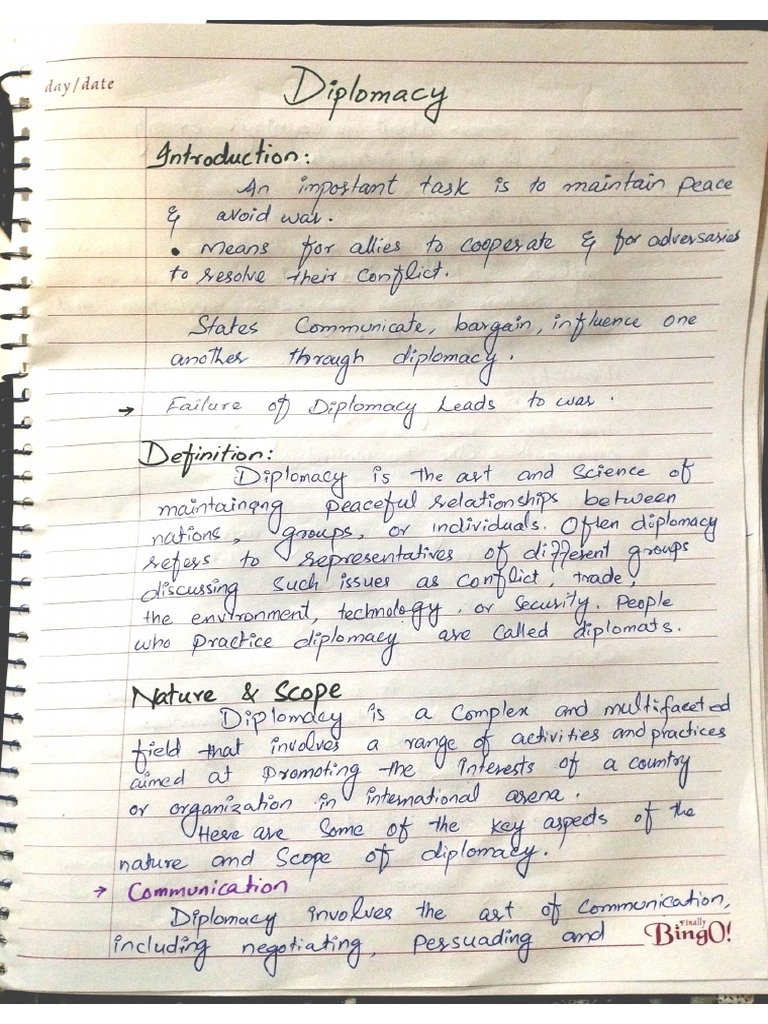 day/date
Diplomacy
Introduction:
An important task is to maintain peace
& avoid war.
• Means for allies to cooperate & for adversaries
to resolve their conflict.
States Communicate, bargain, influence one
another through diplomacy.
→ Failure of Diplomacy Leads to war.
Definition:
Diplomacy is the art and science of
maintainengng peaceful relationships between
nations, groups, or individuals. Often diplomacy
refers to representatives of different groups
discussing such issues as conflict, trade,
the environment, technology, or security. People
who practice diplomacy are called diplomats.
Nature & Scope
Diplomacy is a complex and multifaceted
field that involves a range of activities and practices
aimed at promoting the interests of a country
or organization in international arena.
Here are Some of the key aspects of the
nature and Scope of diplomacy.
→ Communication
Diplomacy involves the art of communication,
including negotiating, persuading and
Finally
BingO!